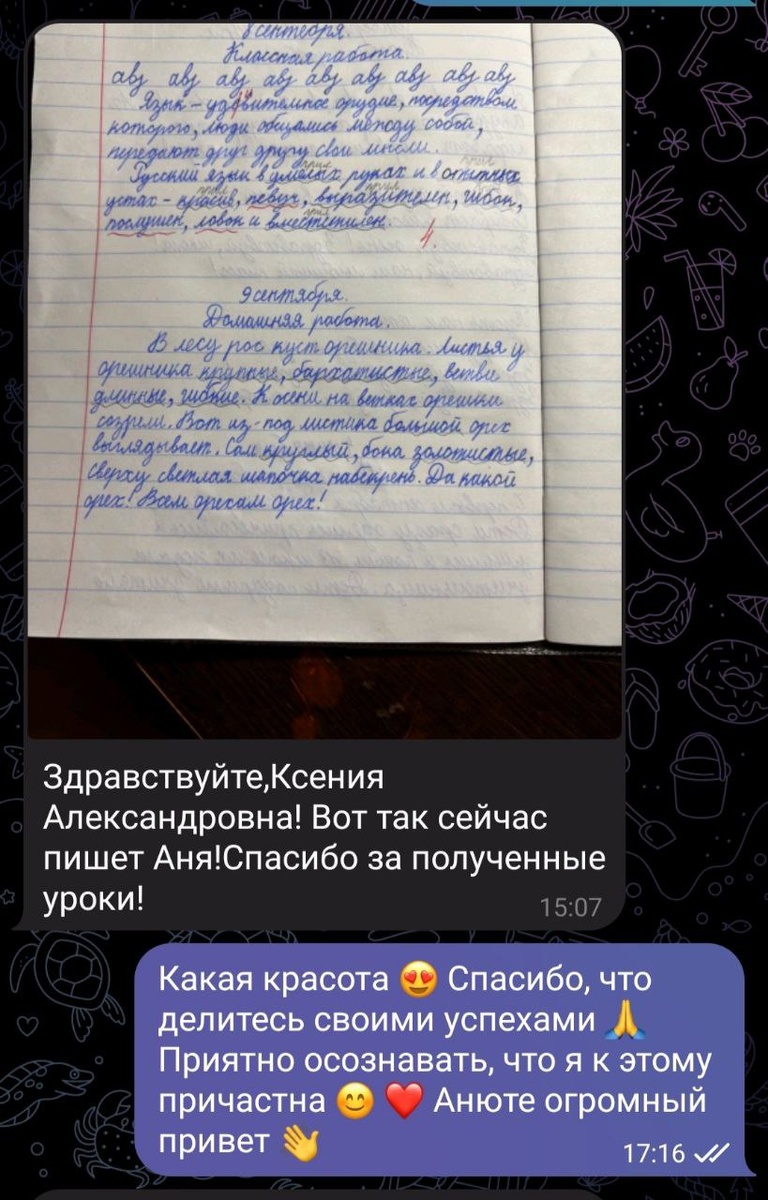 8 сентября.
Классная работа.
авз авз авз авз авз авз авз авз авз
Язык – удивительное орудие, посредством
которого, люди общаясь между собой,
передают друг другу свои мысли.
Русский язык в умелых руках и в опытных
устах – красив, певуч, выразителен, гибок,
послушен, ловок и вместителен.
4.
9 сентября.
Домашняя работа.
В лесу рос куст орешника. Листья у
орешника крупные, бархатистые, ветви
длинные, гибкие. К осени на ветках орешки
созрели. Вот из-под листика большой орех
выглядывает. Сам круглый, бока золотистые,
сверху светлая шапочка набекрень. Да какой
орех! Всем орехам орех!
Здравствуйте,Ксения
Александровна! Вот так сейчас
пишет Аня!Спасибо за полученные
уроки!
15:07
Какая красота 😍 Спасибо, что
делитесь своими успехами 🙏
Приятно осознавать, что я к этому
причастна 😊 ❤️ Анюте огромный
привет 👋
17:16